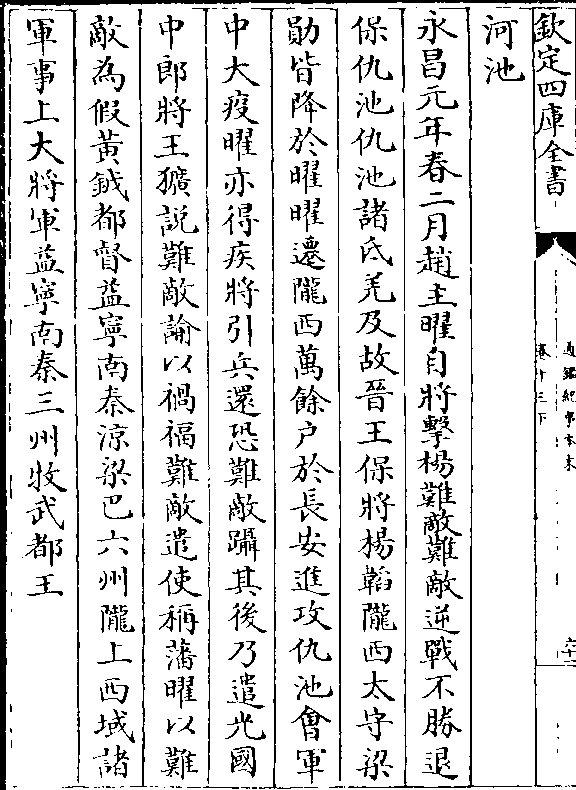 欽定四庫全書
通鑑紀事本末
卷十三下
六十二
河池
永昌元年春二月趙主曜自將擊楊難敵難敵逆戰不勝退
保仇池仇池諸氐羌及故晉王保將楊韜隴西太守梁
勛皆降於曜曜遷隴西萬餘户於長安進攻仇池㑹軍
中大疫曜亦得疾將引兵還恐難敵躡其後乃遣光國
中郎將王獷説難敵諭以禍福難敵遣使稱藩曜以難
敵為假黃鉞都督益寧南秦涼梁巴六州隴上西域諸
軍事上大將軍益寧南秦三州牧武都王